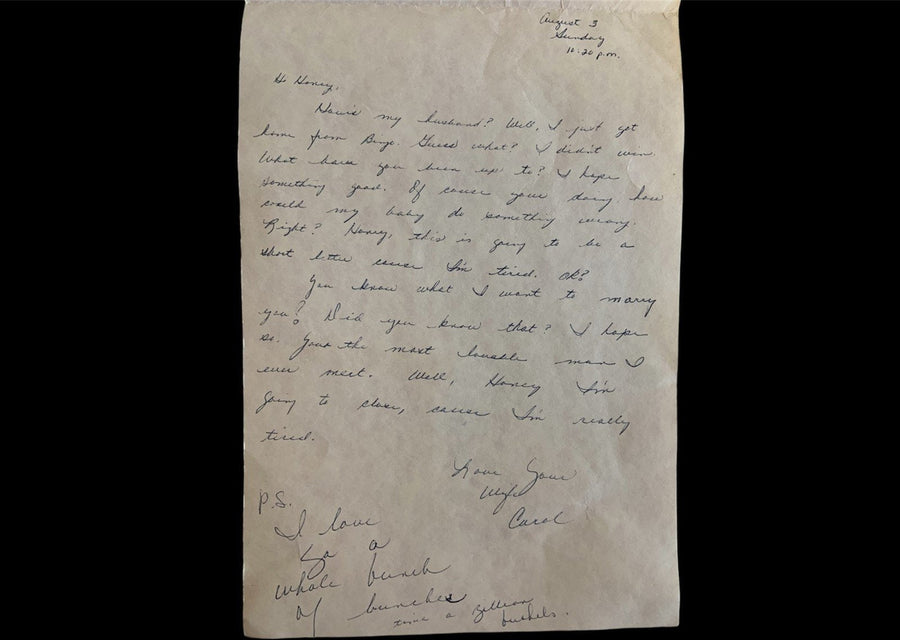 August 3
Sunday
10:20 p.m.
Hi Honey,
How's my husband? Well, I just got
home from Bingo. Guess what? I didn't win.
What have you been up to? I hope
something good. Of cause your doing, how
could my baby do something wrong.
Right? Honey, this is going to be a
short letter cause I'm tired. OK?
You know what I want to marry
you? Did you know that? I hope
so. Your the most loveable man I
ever meet. Well, Honey I'm
going to close, cause I'm really
tired.
Love Your
Wife
Carol
P.S.
I love
Ya a
whole bunch
of bunches
time a zillion
bushels.